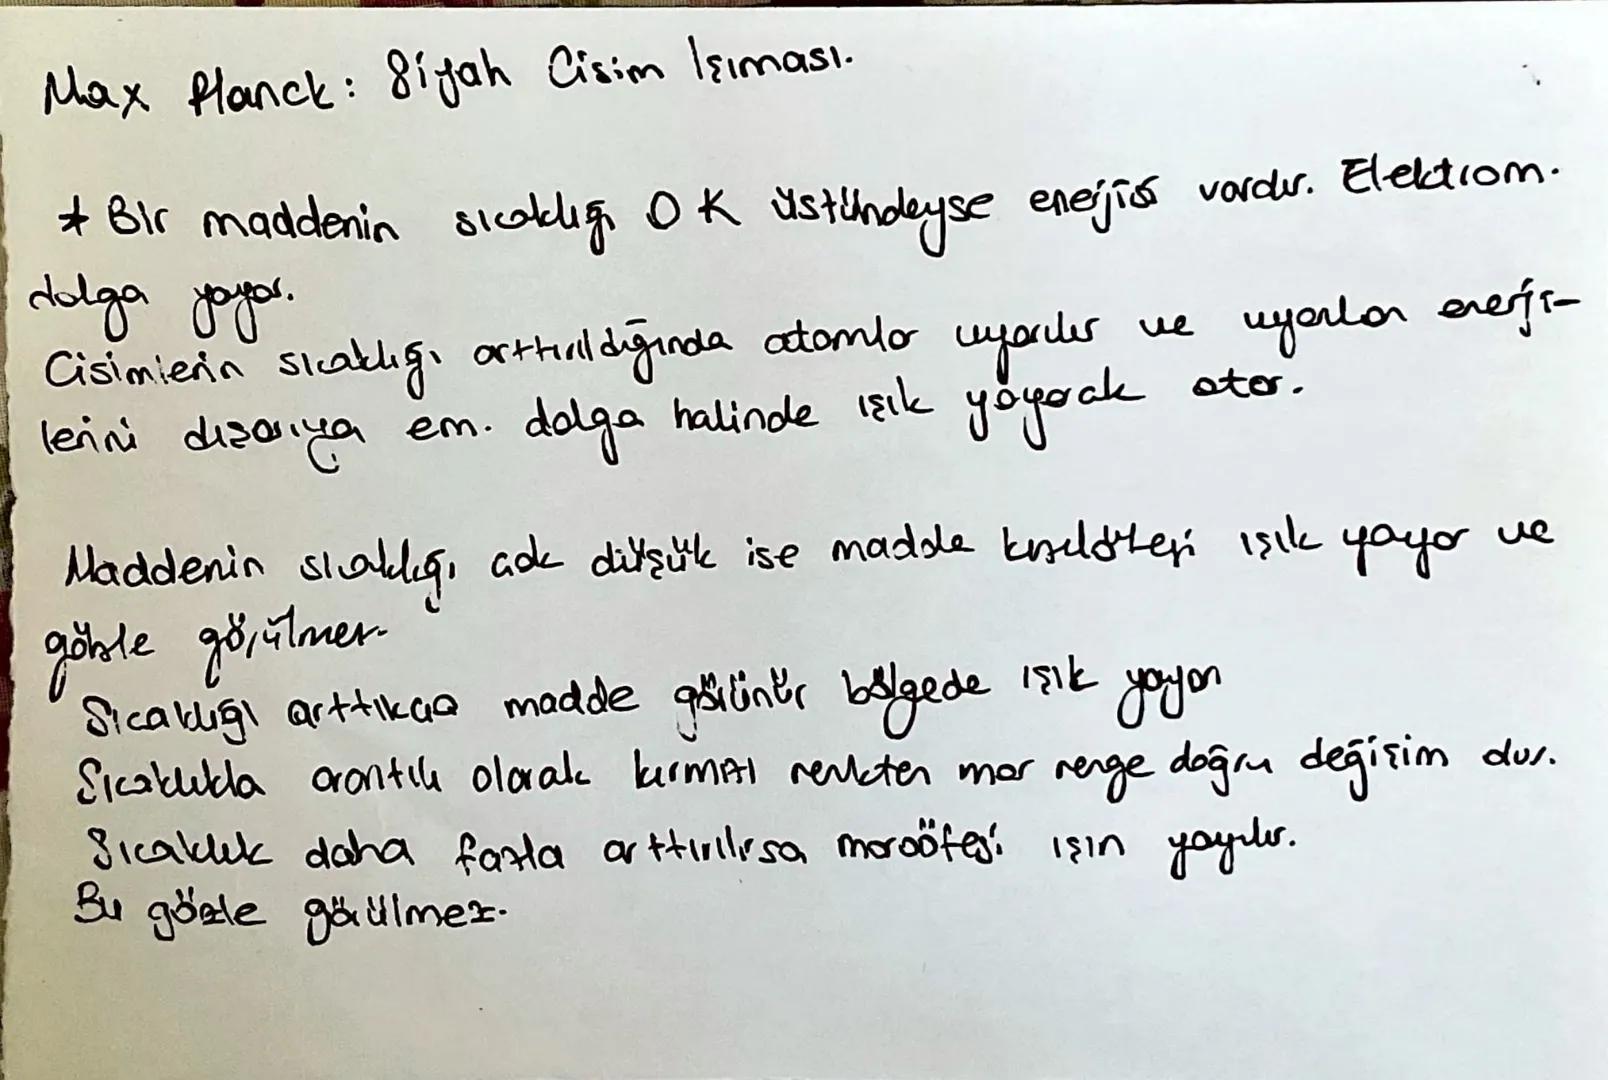 Max Planck: Siyah Cisim Işıması.
* Bir maddenin sıcaklığı 0 K üstündeyse enerjisi vardır. Elektrom.
dalga yayar.
Cisimlerin sıcaklığı arttırıldığında atomlar uyarılır ve uyarılan enerji-
lerini dışarıya em. dalga halinde ışık yayarak atar.
Maddenin sıcaklığı çok düşük ise madde kızılötesi ışık yayar ve
gözle görülmez.
Sıcaklığı arttıkça madde görünür bölgede ışık yayar
Sıcaklıkla orantılı olarak kırmızı renkten mor renge doğru değişim olur.
Sıcaklık daha fazla arttırılırsa moroötesi ışın yayılır.
Bu gözle görülmez.